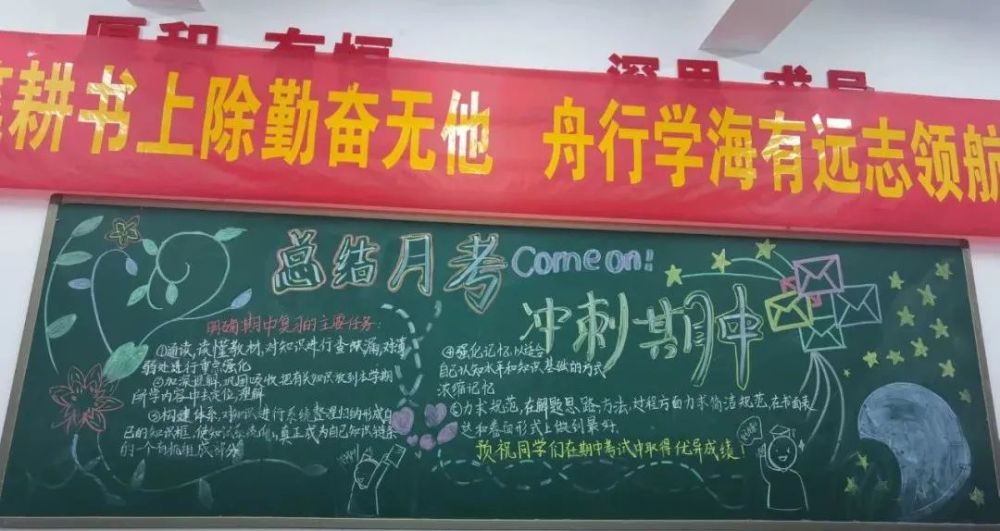 厚积 有恒 深思 求是
耕书上除勤奋无他 舟行学海有远志领航
总结月考 Come on!
冲刺期中
明确期中复习的主要任务:
①通读,读懂教材,对知识进行查缺漏,对薄
弱处进行重点强化
②加深理解,巩固吸收,把有关知识放到本学期
所学内容中去定位,理解
③构建体系,对知识进行系统整理归纳形成自
己的知识框,使知识系统化,真正成为自己知识链条
的一个有机组成部分
④强化记忆,以适合
自己认知水平和知识基础的方式
浓缩记忆
⑤力求规范,在解题思路,方法,过程方面力求简洁规范,在书面表
达和卷面形式上做到算好.
预祝同学们在期中考试中取得优异成绩!